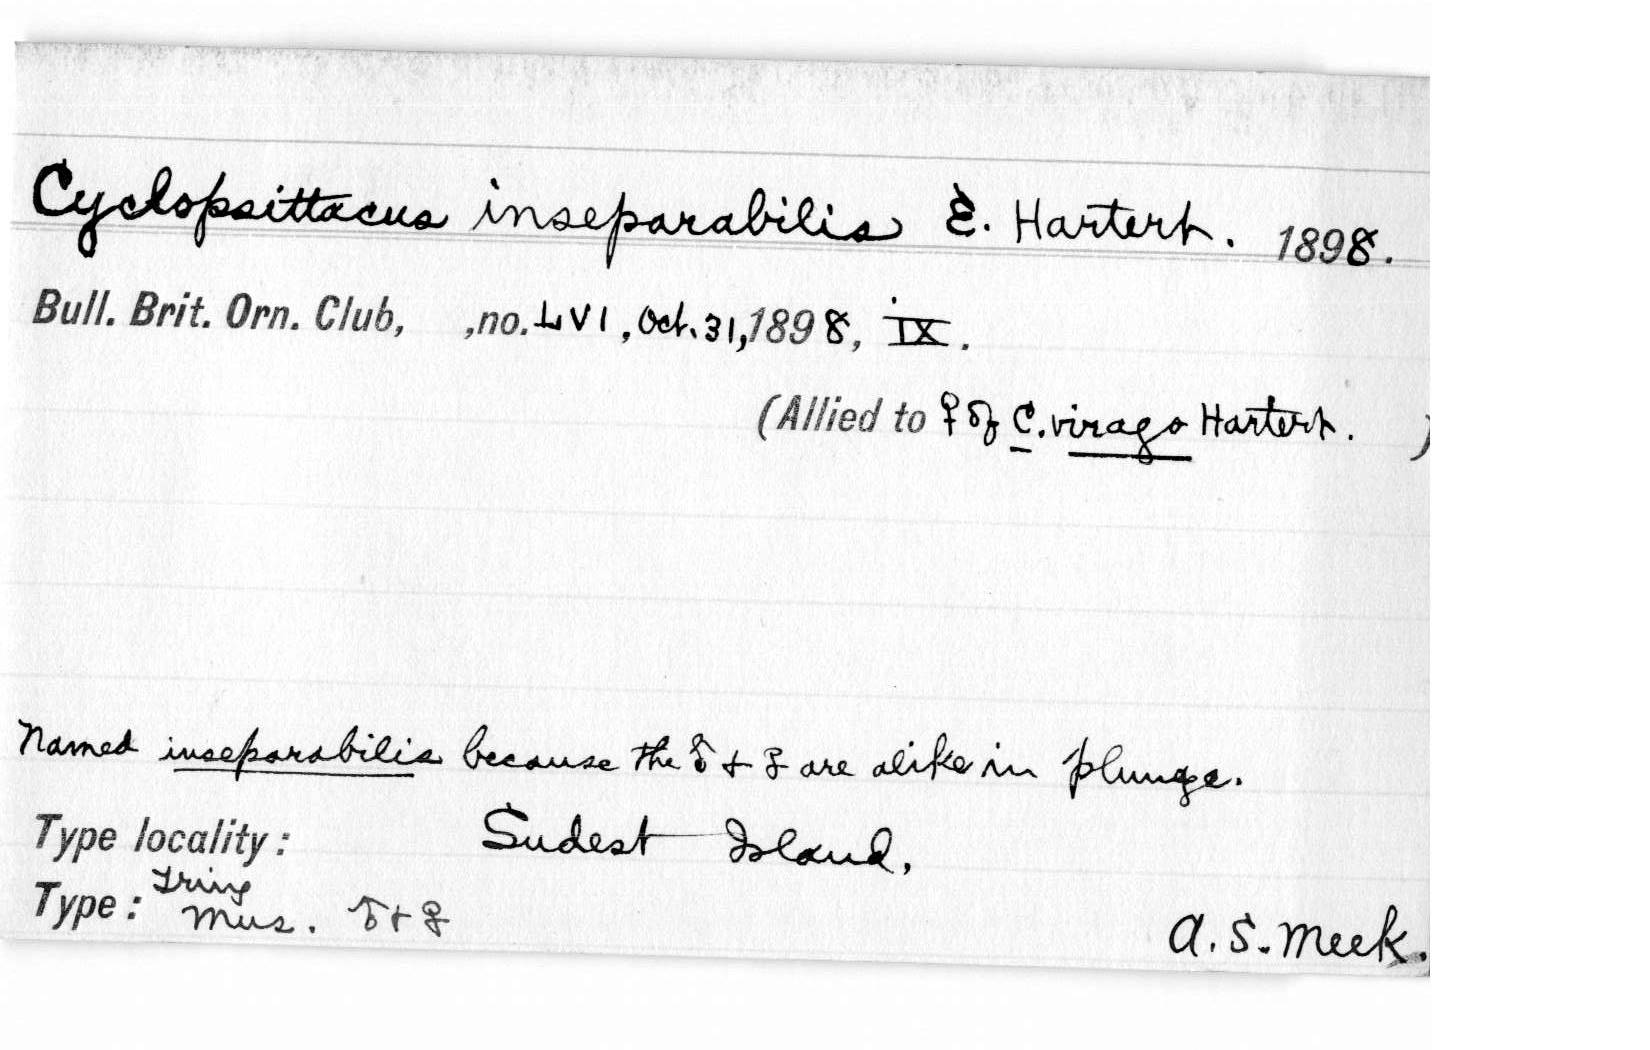 Cyclopsittacus inseparabilis E. Hartert. 1898.
Bull. Brit. Orn. Club, ,no. LVI, Oct. 31, 1898, IX.
(Allied to ♀ of C. virago Hartert. )
Named inseparabilis because the ♂ + ♀ are alike in plunge.
Type locality: Sudest Island.
Type: Tring Mus. ♂ + ♀
A. S. Meek.